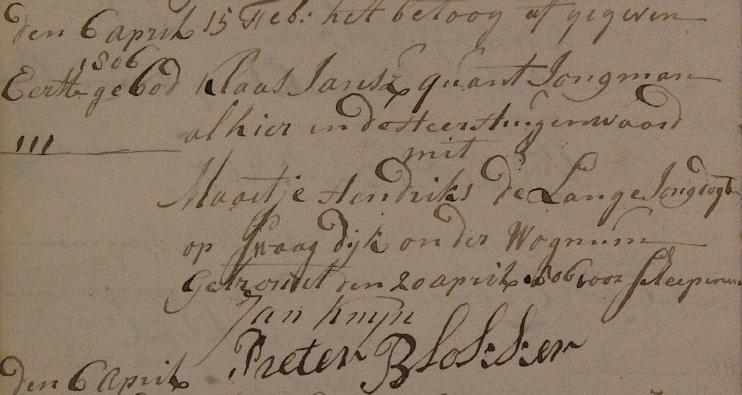 den 6 april 15 Feb: het betoog af gegeven
1806
Eerste gebod Klaas Jansz quant Jongman
alhier in de Heer Hugenwaard
III
mit
Maartje Hendriks de Lange Jongdogter
op Swaag dijk onder Wognum
Getrouwt den 20 april 1806 voor scheepenen
Jan Knijn
Pieter Blokker
den 6 April